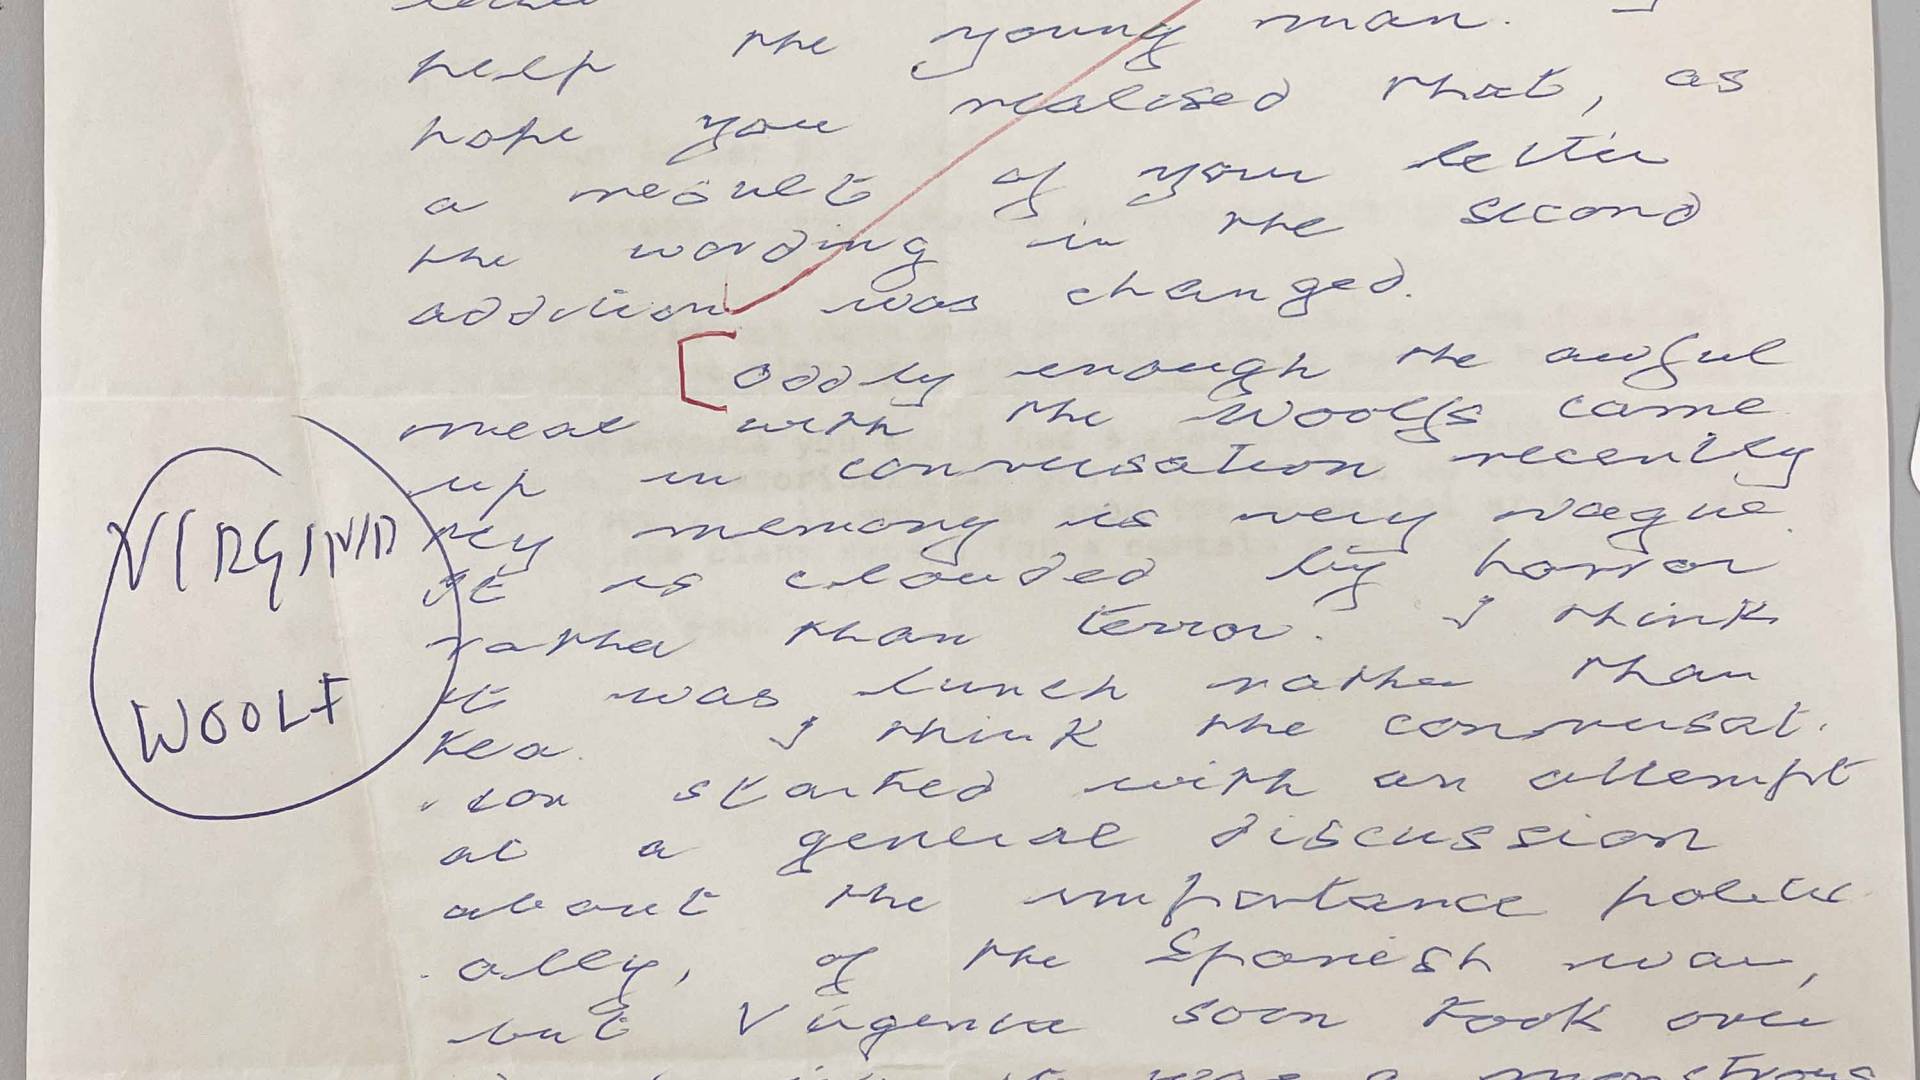 help the young man. I
hope you realised that, as
a result of your letter
the wording in the second
addition was changed.
Oddly enough the awful
meal with the Woolfs came
up in conversation recently
My memory is very vague.
It is clouded by horror
rather than terror. I think
it was lunch rather than
tea. I think the conversat.
.ion started with an attempt
at a general discussion
about the importance politic
.ally, of the Spanish war,
but Virginia soon took over
it was a monstrous
VIRGINIA
WOOLF